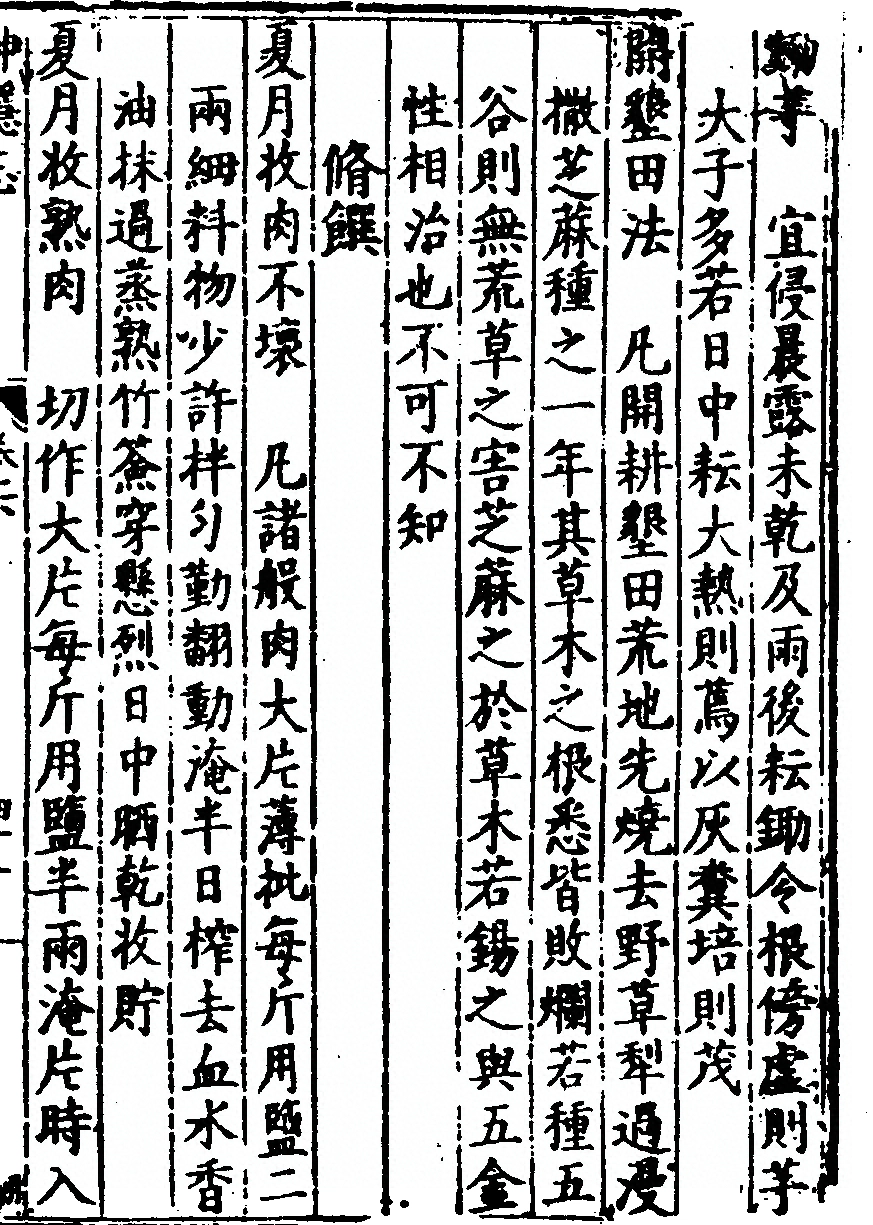 鋤芋　宜侵晨露未乾及雨後耘鋤令根傍虛則芋
大子多若日中耘大熱則蔫以灰糞培則茂
開墾田法　凡開耕墾田荒地先燒去野草犁過漫
撒芝蔴種之一年其草木之根悉皆敗爛若種五
谷則無荒草之害芝蔴之於草木若錫之與五金
性相治也不可不知
脩饌
夏月收肉不壞　凡諸般肉大片薄批每斤用鹽二
兩細料物少許拌勻勤翻動淹半日榨去血水香
油抹過蒸熟竹簽穿懸烈日中晒乾收貯
夏月收熟肉　切作大片每斤用鹽半兩淹片時入